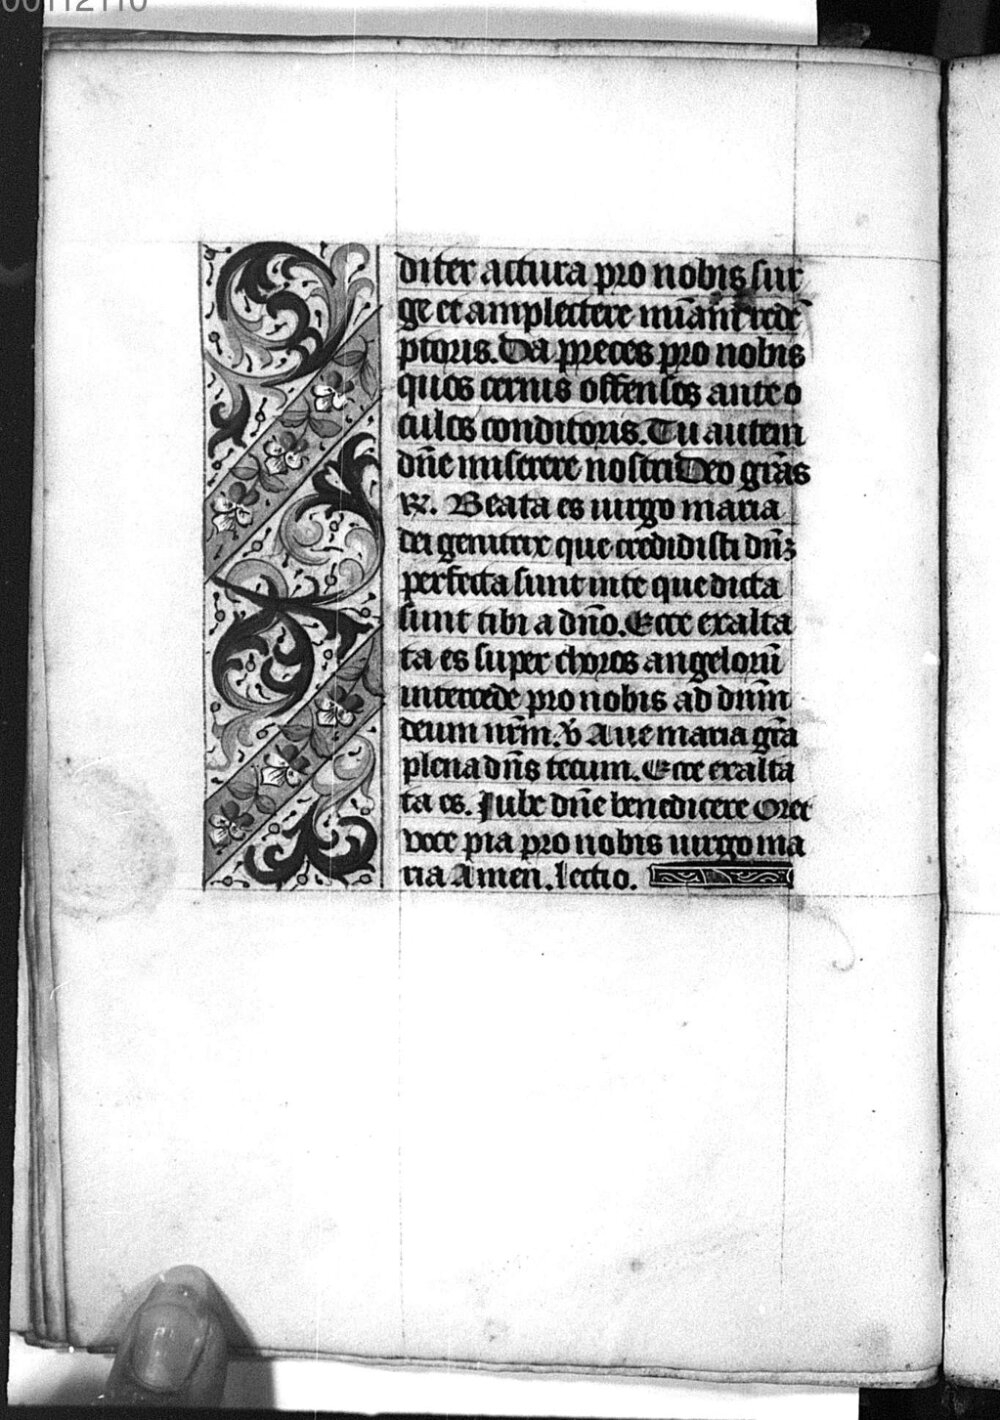 00112110
diter actura pro nobis sur
ge et amplectere miã nr̃ redẽ
ptoris. Da preces pro nobis
quos cernis offensos ante o
culos conditoris. Tu autem
dñe miserere nostri Deo grãs
R̃. Beata es uirgo maria
dei genitrix que credidisti dñꝫ
perfecta sunt in te que dicta
sunt tibi a dño. Ecce exalta
ta es super choros angelorũ
intercede pro nobis ad dnm̃
deum nrm̃. v̾ Aue maria grã
plena dñs tecum. Ecce exalta
ta es. Iube dñe benedicere Oret
voce pia pro nobis uirgo ma
ria Amen. lectio.